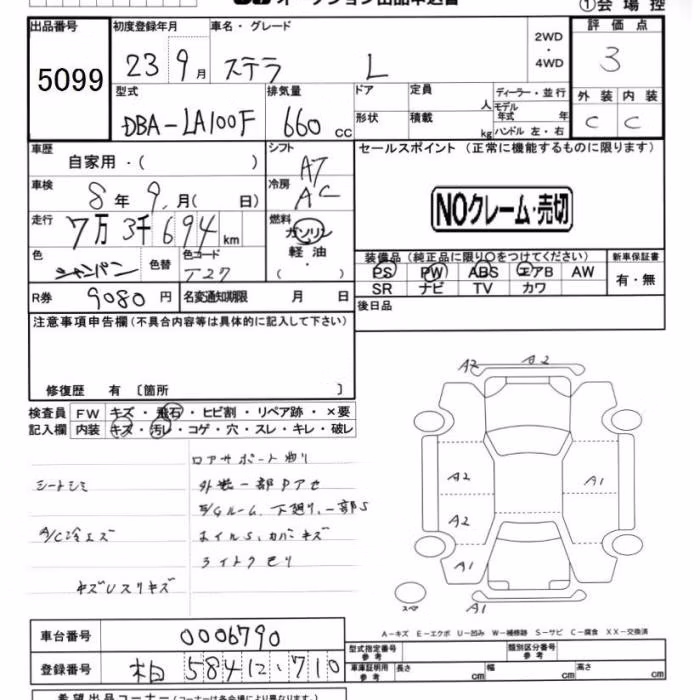 オークション出品申込書
①会場控
出品番号
5099
初度登録年月
23 9月
車名・グレード
ステラ L
2WD
・
4WD
評価点
3
型式
DBA-LA100F
排気量
660 cc
ドア
形状
定員 人
積載 kg
ディーラー・並行
モデル年式 年
ハンドル 左・右
外装 内装
C C
車歴
自家用・( )
シフト
AT
セールスポイント (正常に機能するものに限ります)
NOクレーム・売切
車検
8年9月( 日)
冷房
AC
走行
7万3千694km
燃料
ガソリン
軽油
( ・ )
色
シャンパン
色替
色コード
T27
装備品(純正品に限り○をつけてください)
新車保証書
PS PW ABS エアB AW
SR ナビ TV カワ
有・無
R券
9080円
名変通知期限 月 日
後日品
注意事項申告欄(不具合内容等は具体的に記入して下さい)
修復歴 有 〔箇所 〕
検査員
記入欄
FW キズ・飛石・ヒビ割・リペア跡・×要
内装 キズ・汚レ・コゲ・穴・スレ・キレ・破レ
ロアサポート曲り
シートシミ
外装一部Pアセ
E/Gルーム、下廻り、一部S
A/C冷エズ
ホイルS、カバーキズ
ライトクモリ
キズUスリキズ
A2 A2
A2 A1
A2
A1
A1
スペア
A-キズ E-エクボ U-凹み W-補修跡 S-サビ C-腐食 XX-交換済
車台番号
0006790
登録番号
584 12-710
型式指定番号
参考
類別区分番号
参考
車庫証明用
参考
長さ cm 幅 cm 高さ cm
希望出品コーナー